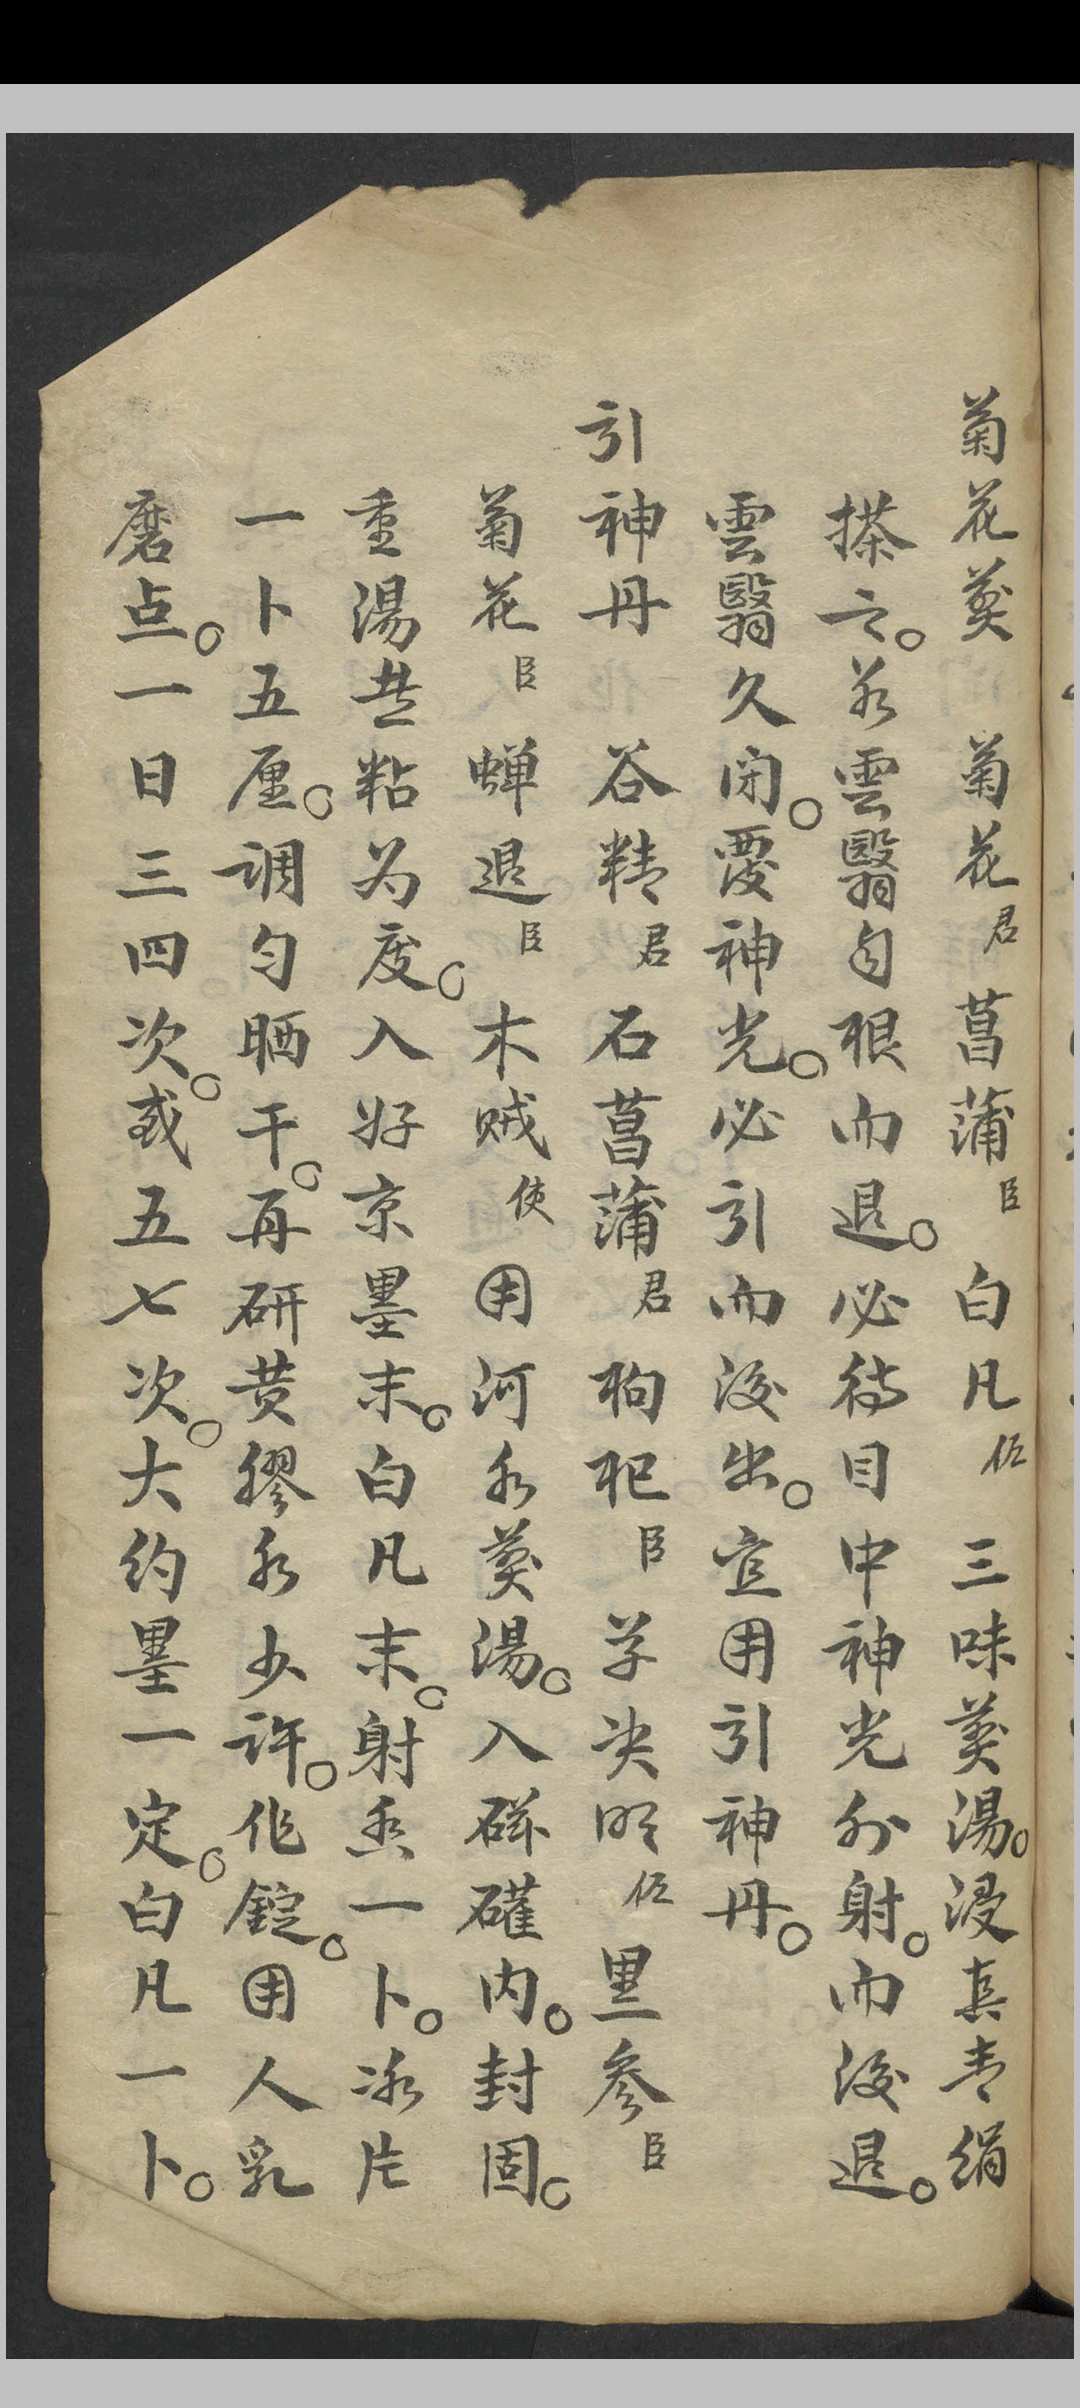 菊花煎 菊花君 菖蒲臣 白凡佐 三味煎湯。浸真青绢
搽之。若雲翳自根而退。必待目中神光外射。而後退。
雲翳久闭。覆神光。必引而後出。宜用引神丹。
引神丹 谷精君 石菖蒲君 枸杞臣 草决明佐 黑参臣
菊花臣 蝉退臣 木贼使 用河水煎湯。入磁礶内。封固。
重湯煮粘为度。入好京墨末。白凡末。射香一卜。冰片
一卜五厘。调匀晒干。再研黄膠水少许。作錠。用人乳
磨点。一日三四次。或五七次。大约墨一定。白凡一卜。